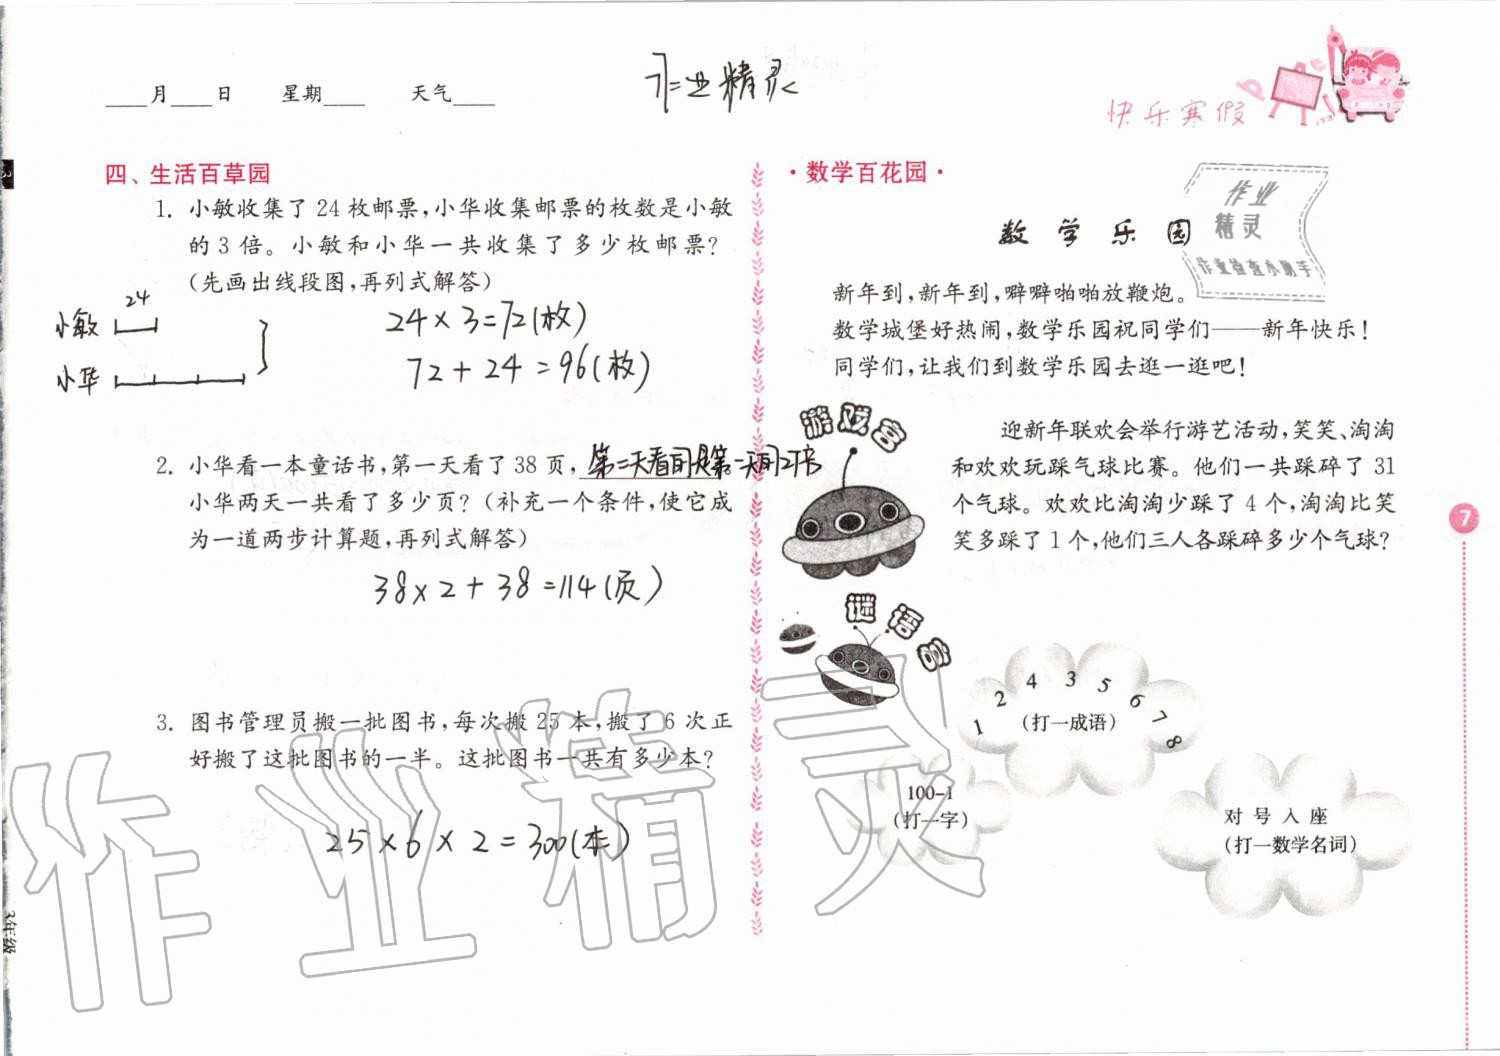 ____月____日 星期____ 天气____
作业精灵
快乐寒假
四、生活百草园
1. 小敏收集了 24 枚邮票,小华收集邮票的枚数是小敏
的 3 倍。小敏和小华一共收集了多少枚邮票?
(先画出线段图,再列式解答)
24
小敏
小华
24×3=72(枚)
72+24=96(枚)
2. 小华看一本童话书,第一天看了 38 页,
小华两天一共看了多少页?(补充一个条件,使它成
为一道两步计算题,再列式解答)
38×2+38=114(页)
3. 图书管理员搬一批图书,每次搬 25 本,搬了 6 次正
好搬了这批图书的一半。这批图书一共有多少本?
25×6×2=300(本)
·数学百花园·
作业
精灵
作业检查小助手
数学乐园
新年到,新年到,噼噼啪啪放鞭炮。
数学城堡好热闹,数学乐园祝同学们——新年快乐!
同学们,让我们到数学乐园去逛一逛吧!
游戏宫
迎新年联欢会举行游艺活动,笑笑、淘淘
和欢欢玩踩气球比赛。他们一共踩碎了 31
个气球。欢欢比淘淘少踩了 4 个,淘淘比笑
笑多踩了 1 个,他们三人各踩碎多少个气球?
谜语宫
1 2 4 3 5 6 7 8
(打一成语)
100-1
(打一字)
对号入座
(打一数学名词)
7
3年级
作业精灵